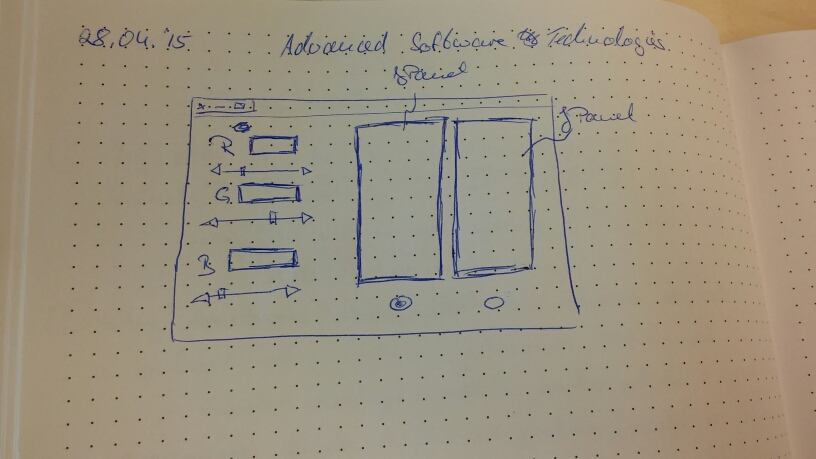 28.04.15 Advanced Software Technologies
JPanel
JPanel
R
G
B